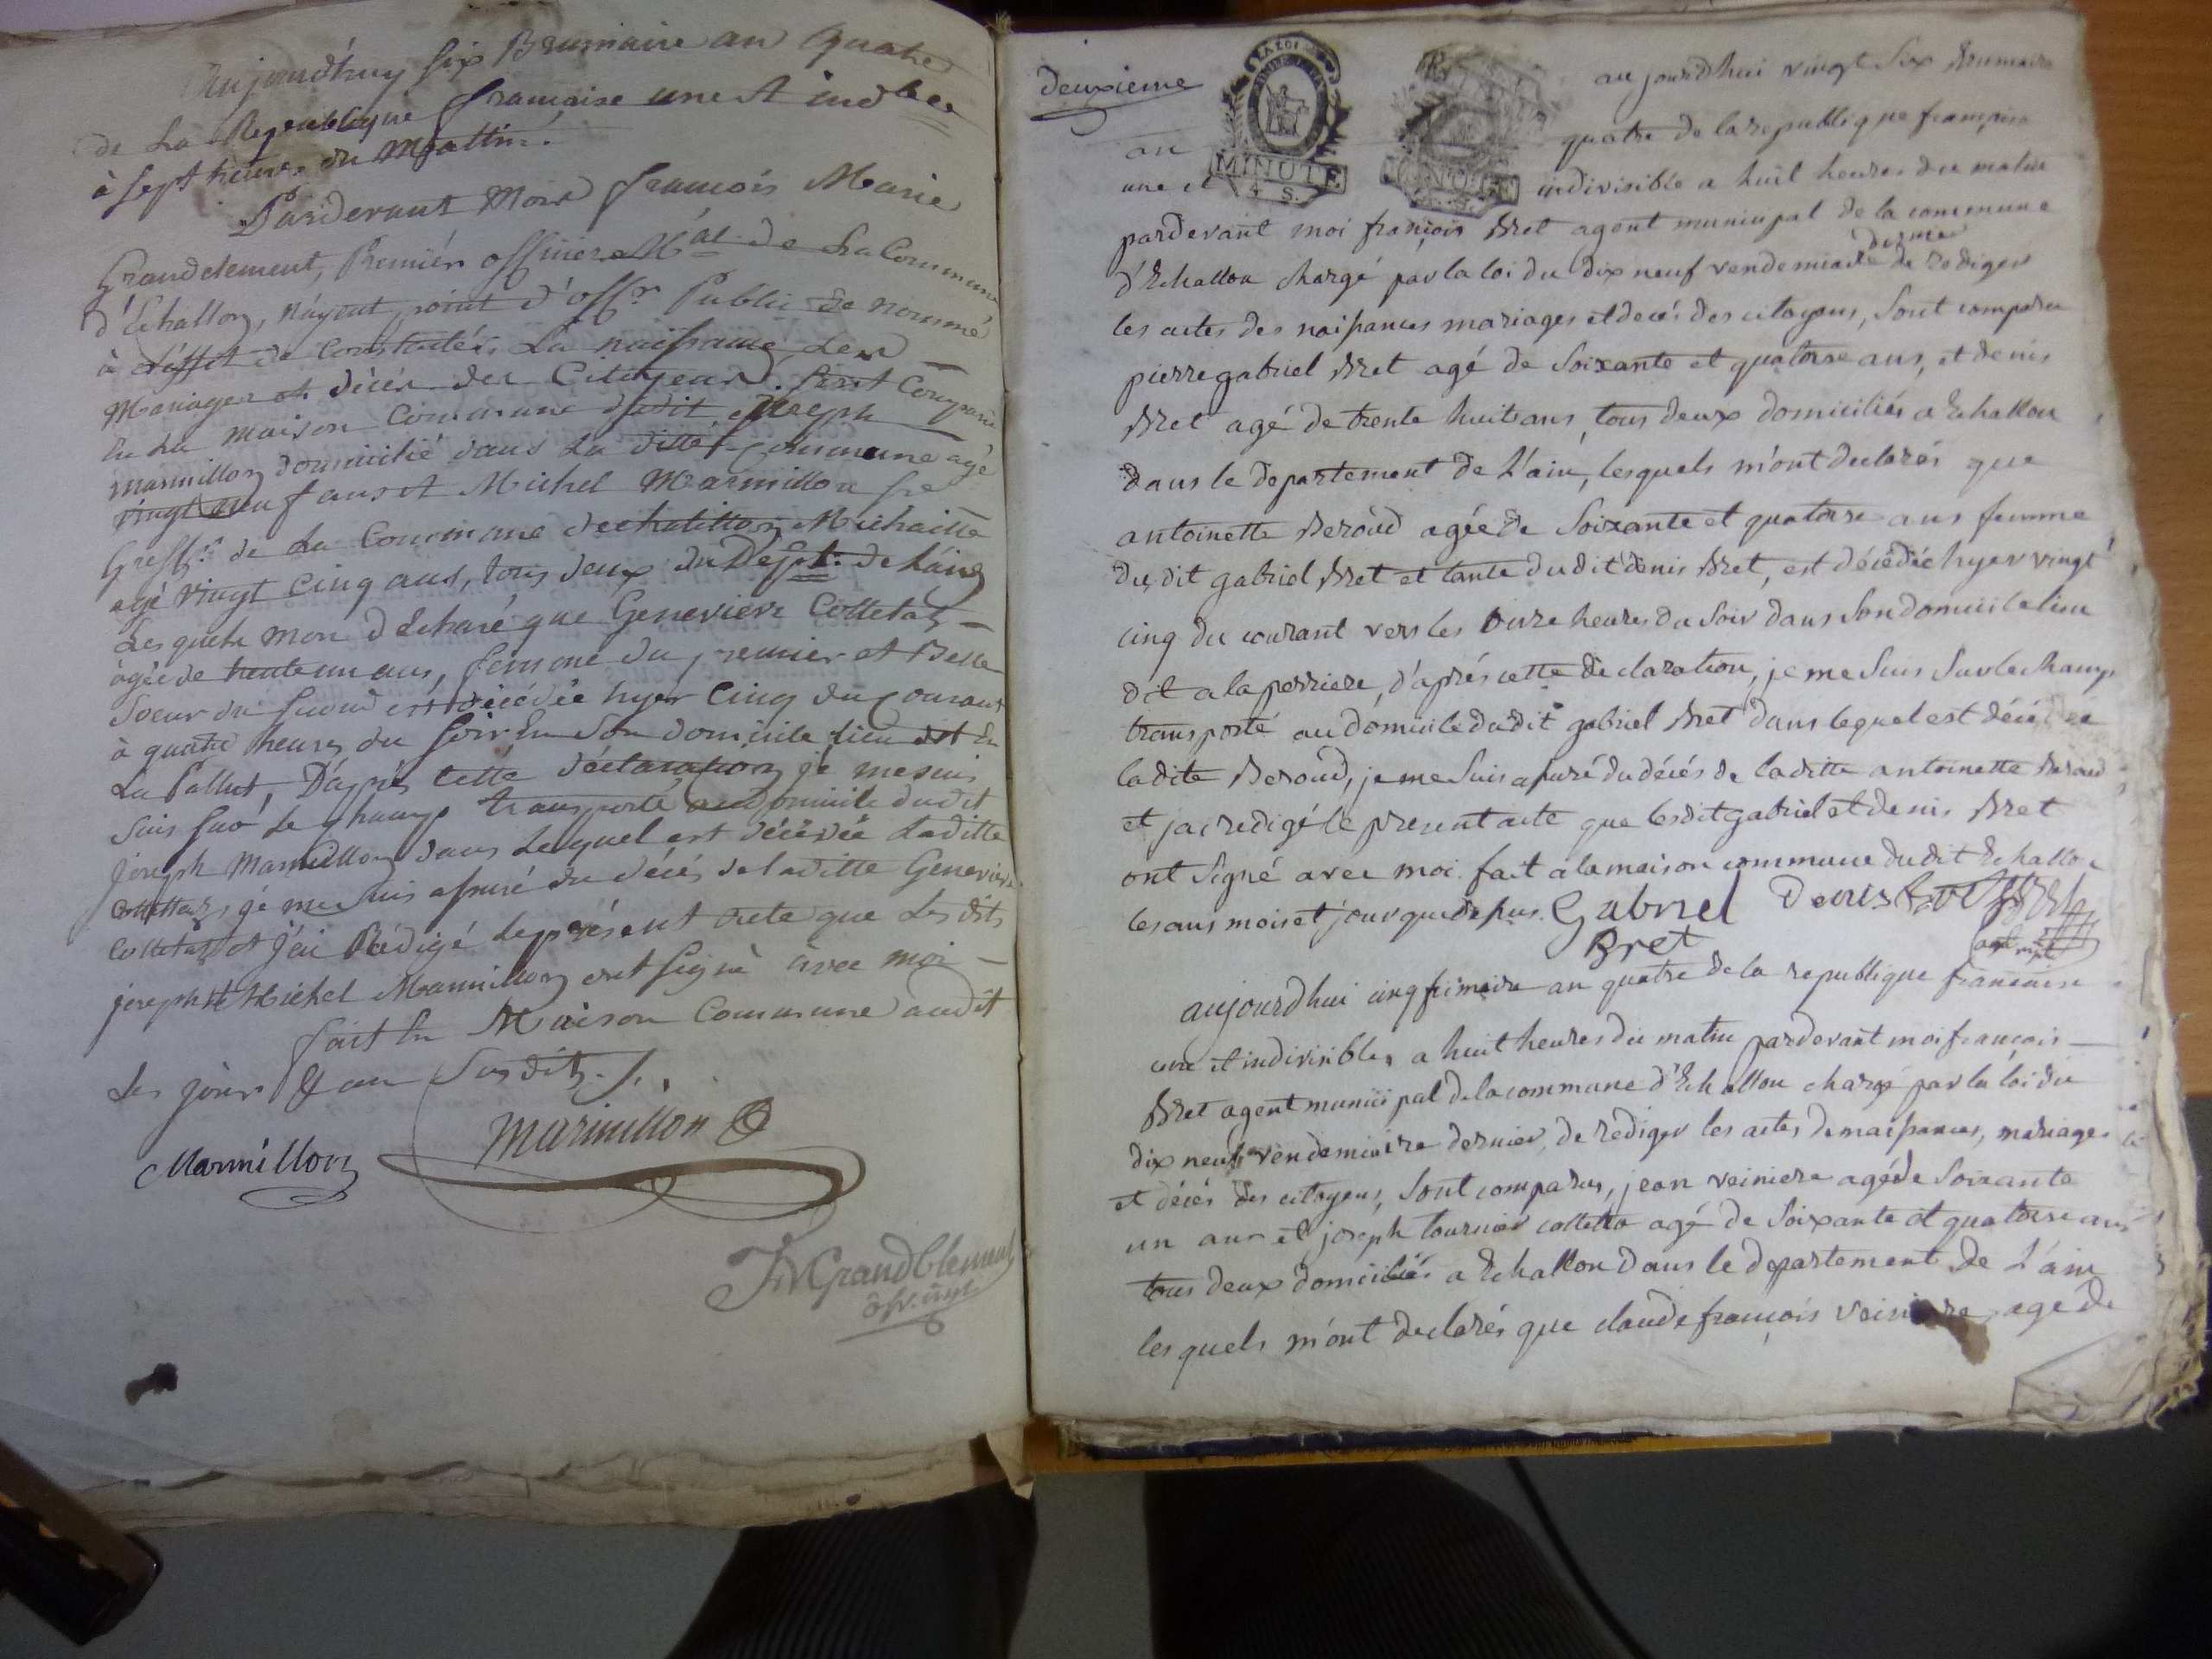 Aujourd'huy six Brumaire an quatre
de La Republique francaise une et indble
à sept heures du Mattin.
Pardevant Moi francois Marie
Grandclement, Premiér officier Mal de La Commune
d'Echallon, n'ayent point d'offr Public de nommé
à L'éffet de Constatér La naissance, des
Mariages et décés des Citoyens. sont Comparu
En La maison Commune dudit, joseph
Marmillon domicilié dans La ditte Commune agé
vingt neuf ans et Michel Marmillon
Greffr de La Commune dechatillon Michaille
agé vingt Cinq ans, tous deux du Dept. de L'ain
Lesquels mon déclaré que Genevieve Colletaz
àgée de trente un ans, femme du premier et Belle
Soeur du second est décédée hyer Cinq du Courant
à quatre heures du soir En Son domicile lieu dit En
La Pallut, D'aprés Cette déclaration je me suis
Suis sur Le champ transporté au domicile dudit
joseph Marmillon dans Lequel est décédée Laditte
Collettaz, je me suis assuré du décés de laditte Genevieve
Colletaz et j'ai Rédigé Le présent acte que Les dits
joseph et Michel Marmillon ont signé avec moi
fait En Maison Commune audit
Les jour & an Susdits.
Marmillon
Marmillon
FMGrandClement
off. mpl.
deuxieme
aujourdhui vingt six brumaire
an quatre de la republique française
une et indivisible a huit heures du matin
MINUTE
4 S.
MINUTE
pardevant moi françois Bret agent municipal de la commune
d'Echallon chargé par la loi du dix neuf vendemiaire dernier de rediger
les actes des naissances mariages et decés des citoyens, sont comparu
pierre gabriel Bret agé de soixante et quatorze ans, et denis
Bret agé de trente huit ans, tous deux domiciliés a Echallon
dans le departement de L'ain, lesquels m'ont declarés que
antoinette Beroud agée de soixante et quatorze ans femme
du dit gabriel Bret et tante du dit denis Bret, est décédée hyer vingt
cinq du courant vers les onze heures du soir dans son domicile lieu
dit a la perriere, d'aprés cette declaration, je me suis sur le champ
transporté au domicile dudit gabriel Bret dans lequel est décédée
ladite Beroud, je me suis assuré du décés de laditte antoinette Beroud
et j'ai redigé le present acte que lesdit gabriel et denis Bret
ont signé avec moi. fait a la maison commune dudit Echallon
les ans mois et jour que dessus. Gabriel Denis Bret
Bret
aujourdhui cinq frimaire an quatre de la republique française
une et indivisible, a huit heures du matin pardevant moi françois
Bret agent municipal de la commune d'Echallon chargé par la loi du
dix neuf vendemiaire dernier, de rediger les actes de naissances, mariages
et décés des citoyens, sont comparus, jean veiniere agé de soixante
un ans et joseph tournier colletta agé de soixante et quatorze ans
tous deux domiciliés a Echallon dans le departement de L'ain
lesquels m'ont declarés que claude françois veiniere, agé de